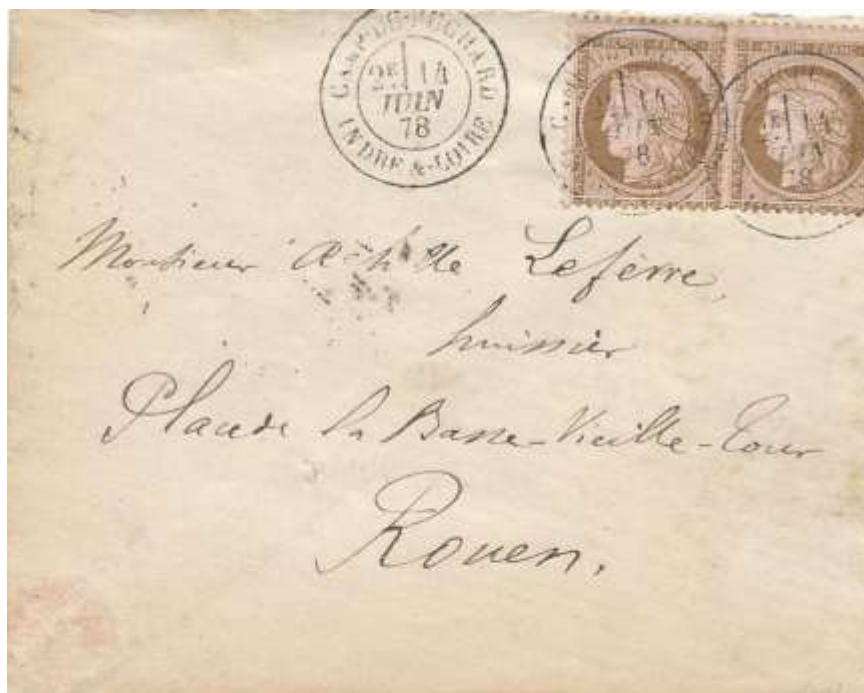 CAMP-DU-RUCHARD
2E 14
JUIN
78
INDRE-&-LOIRE
14
JUIN
8
14
78
Monsieur Achille Lefèvre,
huissier
Place de la Basse-Vieille-Tour
Rouen.